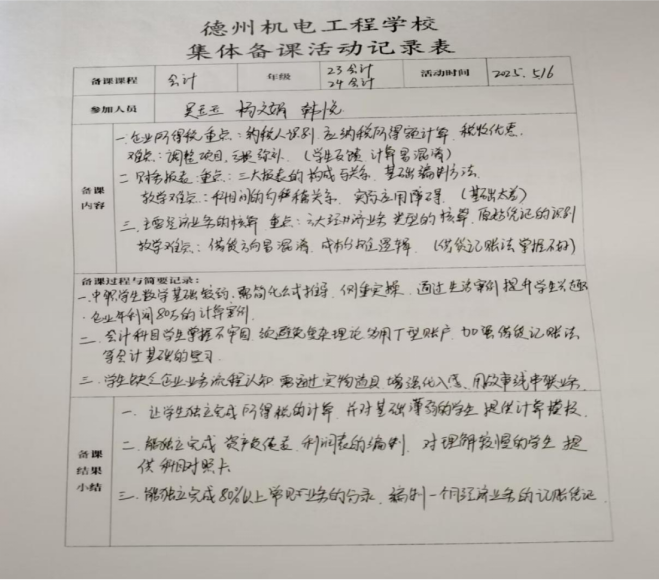 德州机电工程学校
集体备课活动记录表
备课课程 会计 年级 23会计 24会计 活动时间 2025.5/6
参加人员 吴玉玉 杨文娟 韩悦
备课内容
一.企业所得税 重点:纳税人识别 应纳税所得额计算 税收优惠
难点:调整项目 亏损弥补.(学生反馈 计算易混淆)
二.财务报表:重点:三大报表的构成与关系.基础编制方法.
教学难点:科目间的勾稽关系.实际应用障碍.(基础太差)
三.主要经济业务的核算 重点:六大经济业务类型的核算.原始凭证的识别
教学难点:借贷方向易混淆.成本分配逻辑.(借贷记账法掌握不好)
备课过程与简要记录:
一.中职学生数学基础较弱,需简化公式推导.侧重实操.通过生活案例提升学生兴趣
.企业年利润80万的计算案例.
二.会计科目学生掌握不牢固 须避免复杂理论 多用丁型账户.加强借贷记账法
等会计基础的学习.
三.学生缺乏企业业务流程认知 需通过实物道具 增强代入感.用故事线串联业务.
备课结果小结
一.让学生独立完成所得税的计算.并对基础薄弱的学生提供计算模板.
二.能独立完成资产负债表.利润表的编制.对理解较慢的学生提
供科目对照卡
三.能独立完成80%以上常见业务的分录.编制一个月经济业务的记账凭证.